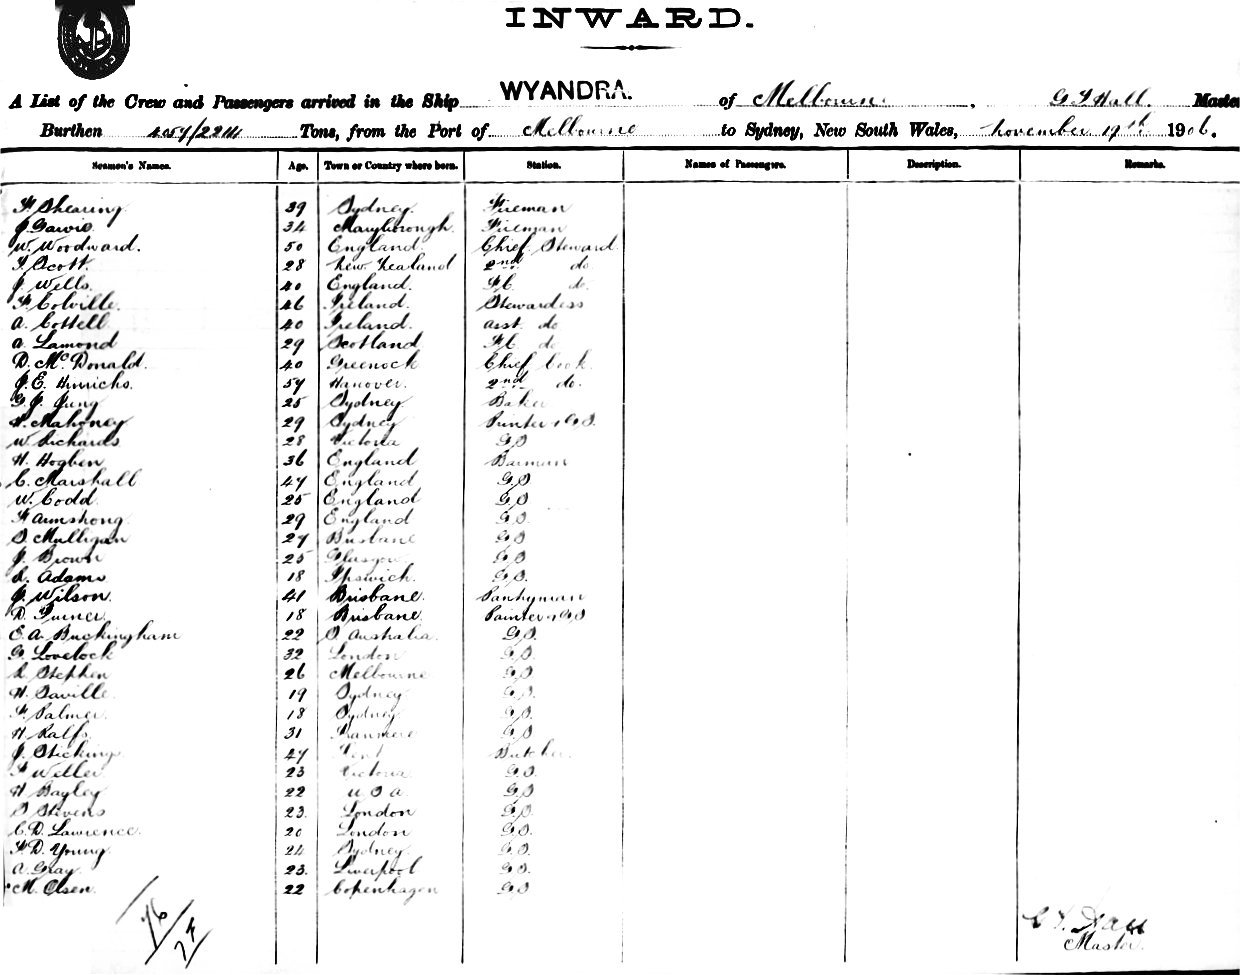 INWARD.
A List of the Crew and Passengers arrived in the Ship WYANDRA. of Melbourne. G T Hall. Master
Burthen Tons, from the Port of Melbourne to Sydney, New South Wales, November 19th 1906.
Seamen's Names. Age. Town or Country where born. Station. Names of Passengers. Description. Remarks.
F Shearing 39 Sydney. Fireman
J Gavin 34 Maryborough. Fireman
W. Woodward. 50 England. Chief Steward
T Scott. 28 New Zealand 2nd do.
J Wells. 40 England. F.C. do.
F Colville. 46 Ireland. Stewardess
A. Cottell 40 Ireland. Asst. do
A. Lamond 29 Scotland F.C. do
D. McDonald. 40 Greenock Chief Cook
J. E. Hinrichs. 57 Hanover. 2nd do.
G. J. Jung 25 Sydney Baker
H. Mahoney 29 Sydney GS.
W Richards 28 Victoria GS
H. Hogben 36 England Barman
C. Marshall 47 England GS
W. Codd 25 England GS
F Armstrong. 29 England GS.
S. Mulligan 27 Brisbane GS
J. Brown 25 Glasgow GS
R. Adams 18 Ipswich. GS.
J. Wilson. 41 Brisbane. Pantryman
D. Turner 18 Brisbane. GS
E. A. Buckingham 22 S Australia. GS.
G. Lovelock 32 London GS.
R. Stephen 26 Melbourne GS
H. Saville. 19 Sydney GS.
F. Palmer. 18 Sydney GS.
H Ralfs. 31 GS
J. Sticking 47 Kent Butcher.
F Weller 23 Victoria GS.
H Bayley 22 U S A. GS
S Stevens 23. London GS.
C. D. Lawrence. 20 London GS.
F. D. Young 24 Sydney. GS.
A. Gray. 23. Liverpool GS.
M. Olsen. 22 Copenhagen GS
76/27
G T. Hall
Master.